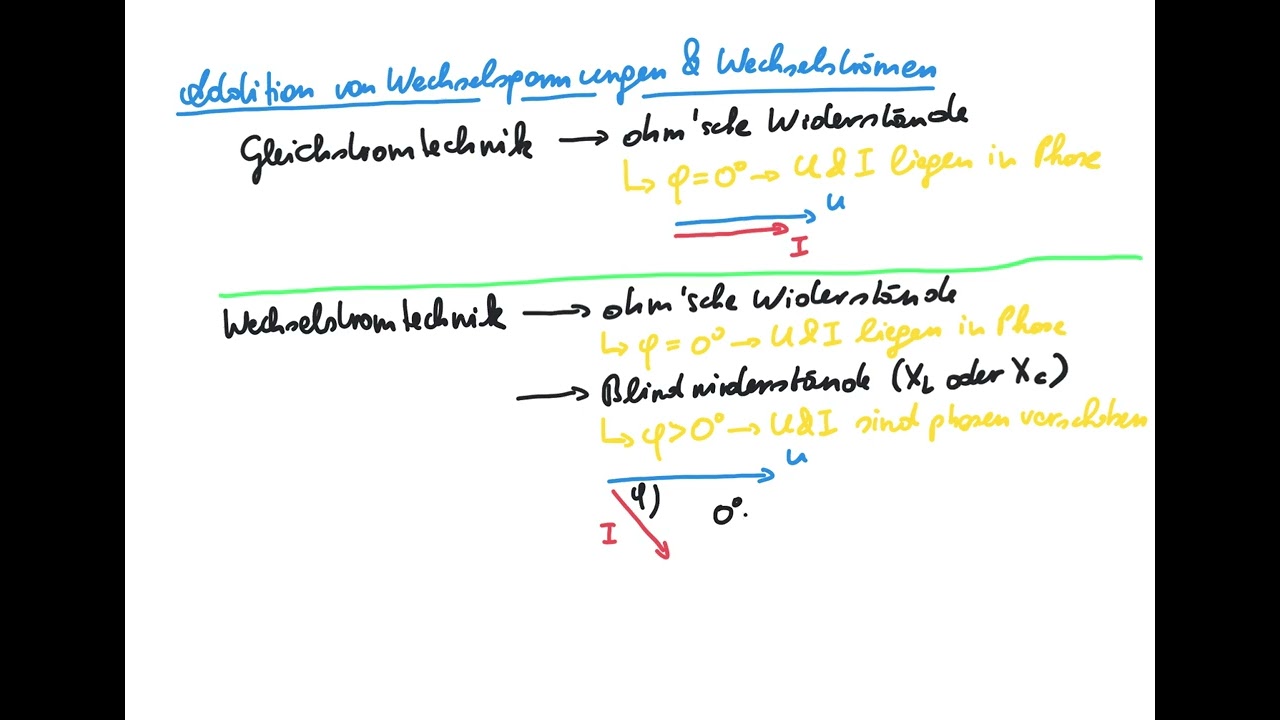 Addition von Wechselspannungen & Wechselströmen
Gleichstromtechnik → ohm'sche Widerstände
↳ φ = 0° → U & I liegen in Phase
U
I
Wechselstromtechnik → ohm'sche Widerstände
↳ φ = 0° → U & I liegen in Phase
→ Blindwiderstände (XL oder Xc)
↳ φ > 0° → U & I sind phasenverschoben
U
φ
I
0°.